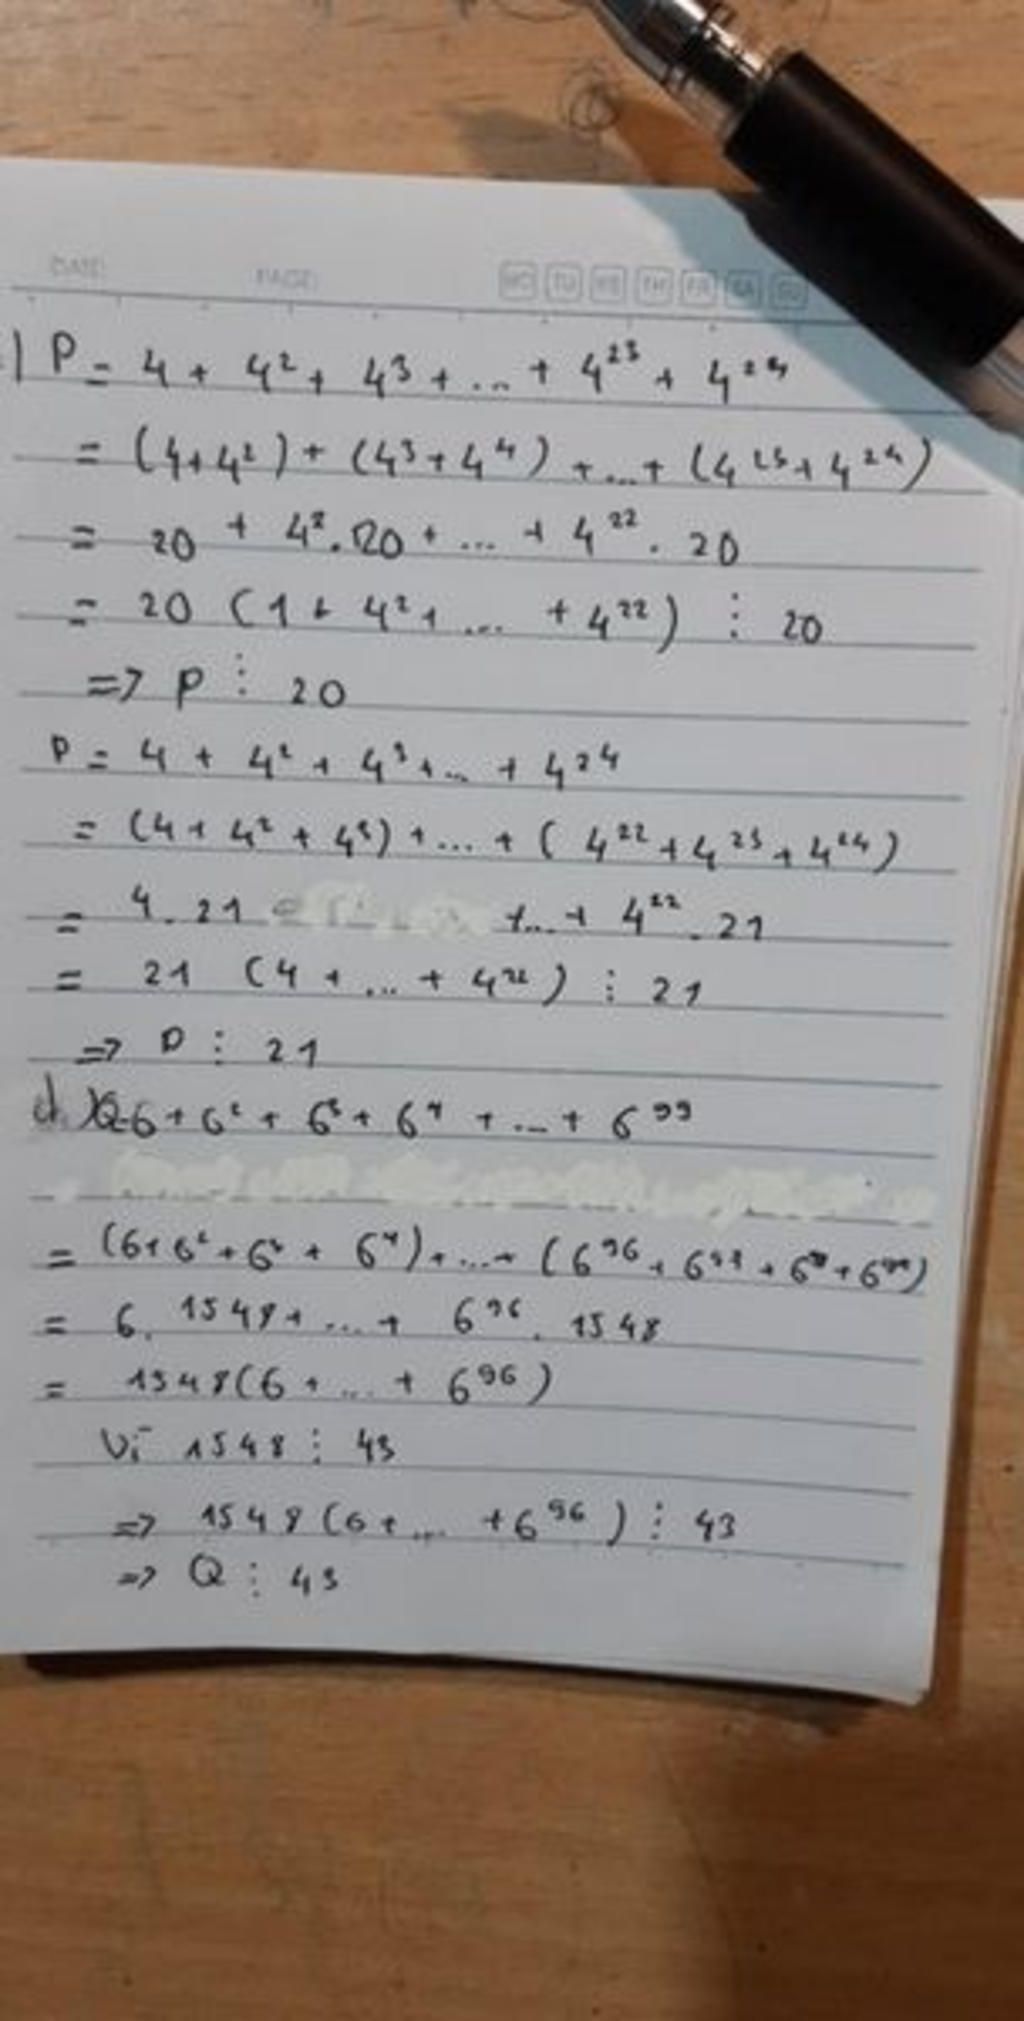 DATE: PAGE: MO TU WE TH FR SA SU
) P = 4 + 4² + 4³ + ... + 4²³ + 4²⁴
= (4+4²) + (4³+4⁴) + ... + (4²³+4²⁴)
= 20 + 4².20 + ... + 4²². 20
= 20 (1 + 4²+ ... + 4²²) ⋮ 20
=> P ⋮ 20
P = 4 + 4² + 4³ + ... + 4²⁴
= (4 + 4² + 4³) + ... + ( 4²² + 4²³ + 4²⁴)
= 4. 21 +...+ 4²². 21
= 21 (4 + ... + 4²²) ⋮ 21
=> P ⋮ 21
d.) Q=6 + 6² + 6³ + 6⁴ + ... + 6⁹⁹
= (6+6²+6³ + 6⁴) + ... + (6⁹⁶ + 6⁹⁷ + 6⁹⁸ + 6⁹⁹)
= 6. 1548+ ... + 6⁹⁶. 1548
= 1548(6 + ... + 6⁹⁶)
Vì 1548 ⋮ 43
=> 1548(6+ ... +6⁹⁶) ⋮ 43
=> Q ⋮ 43